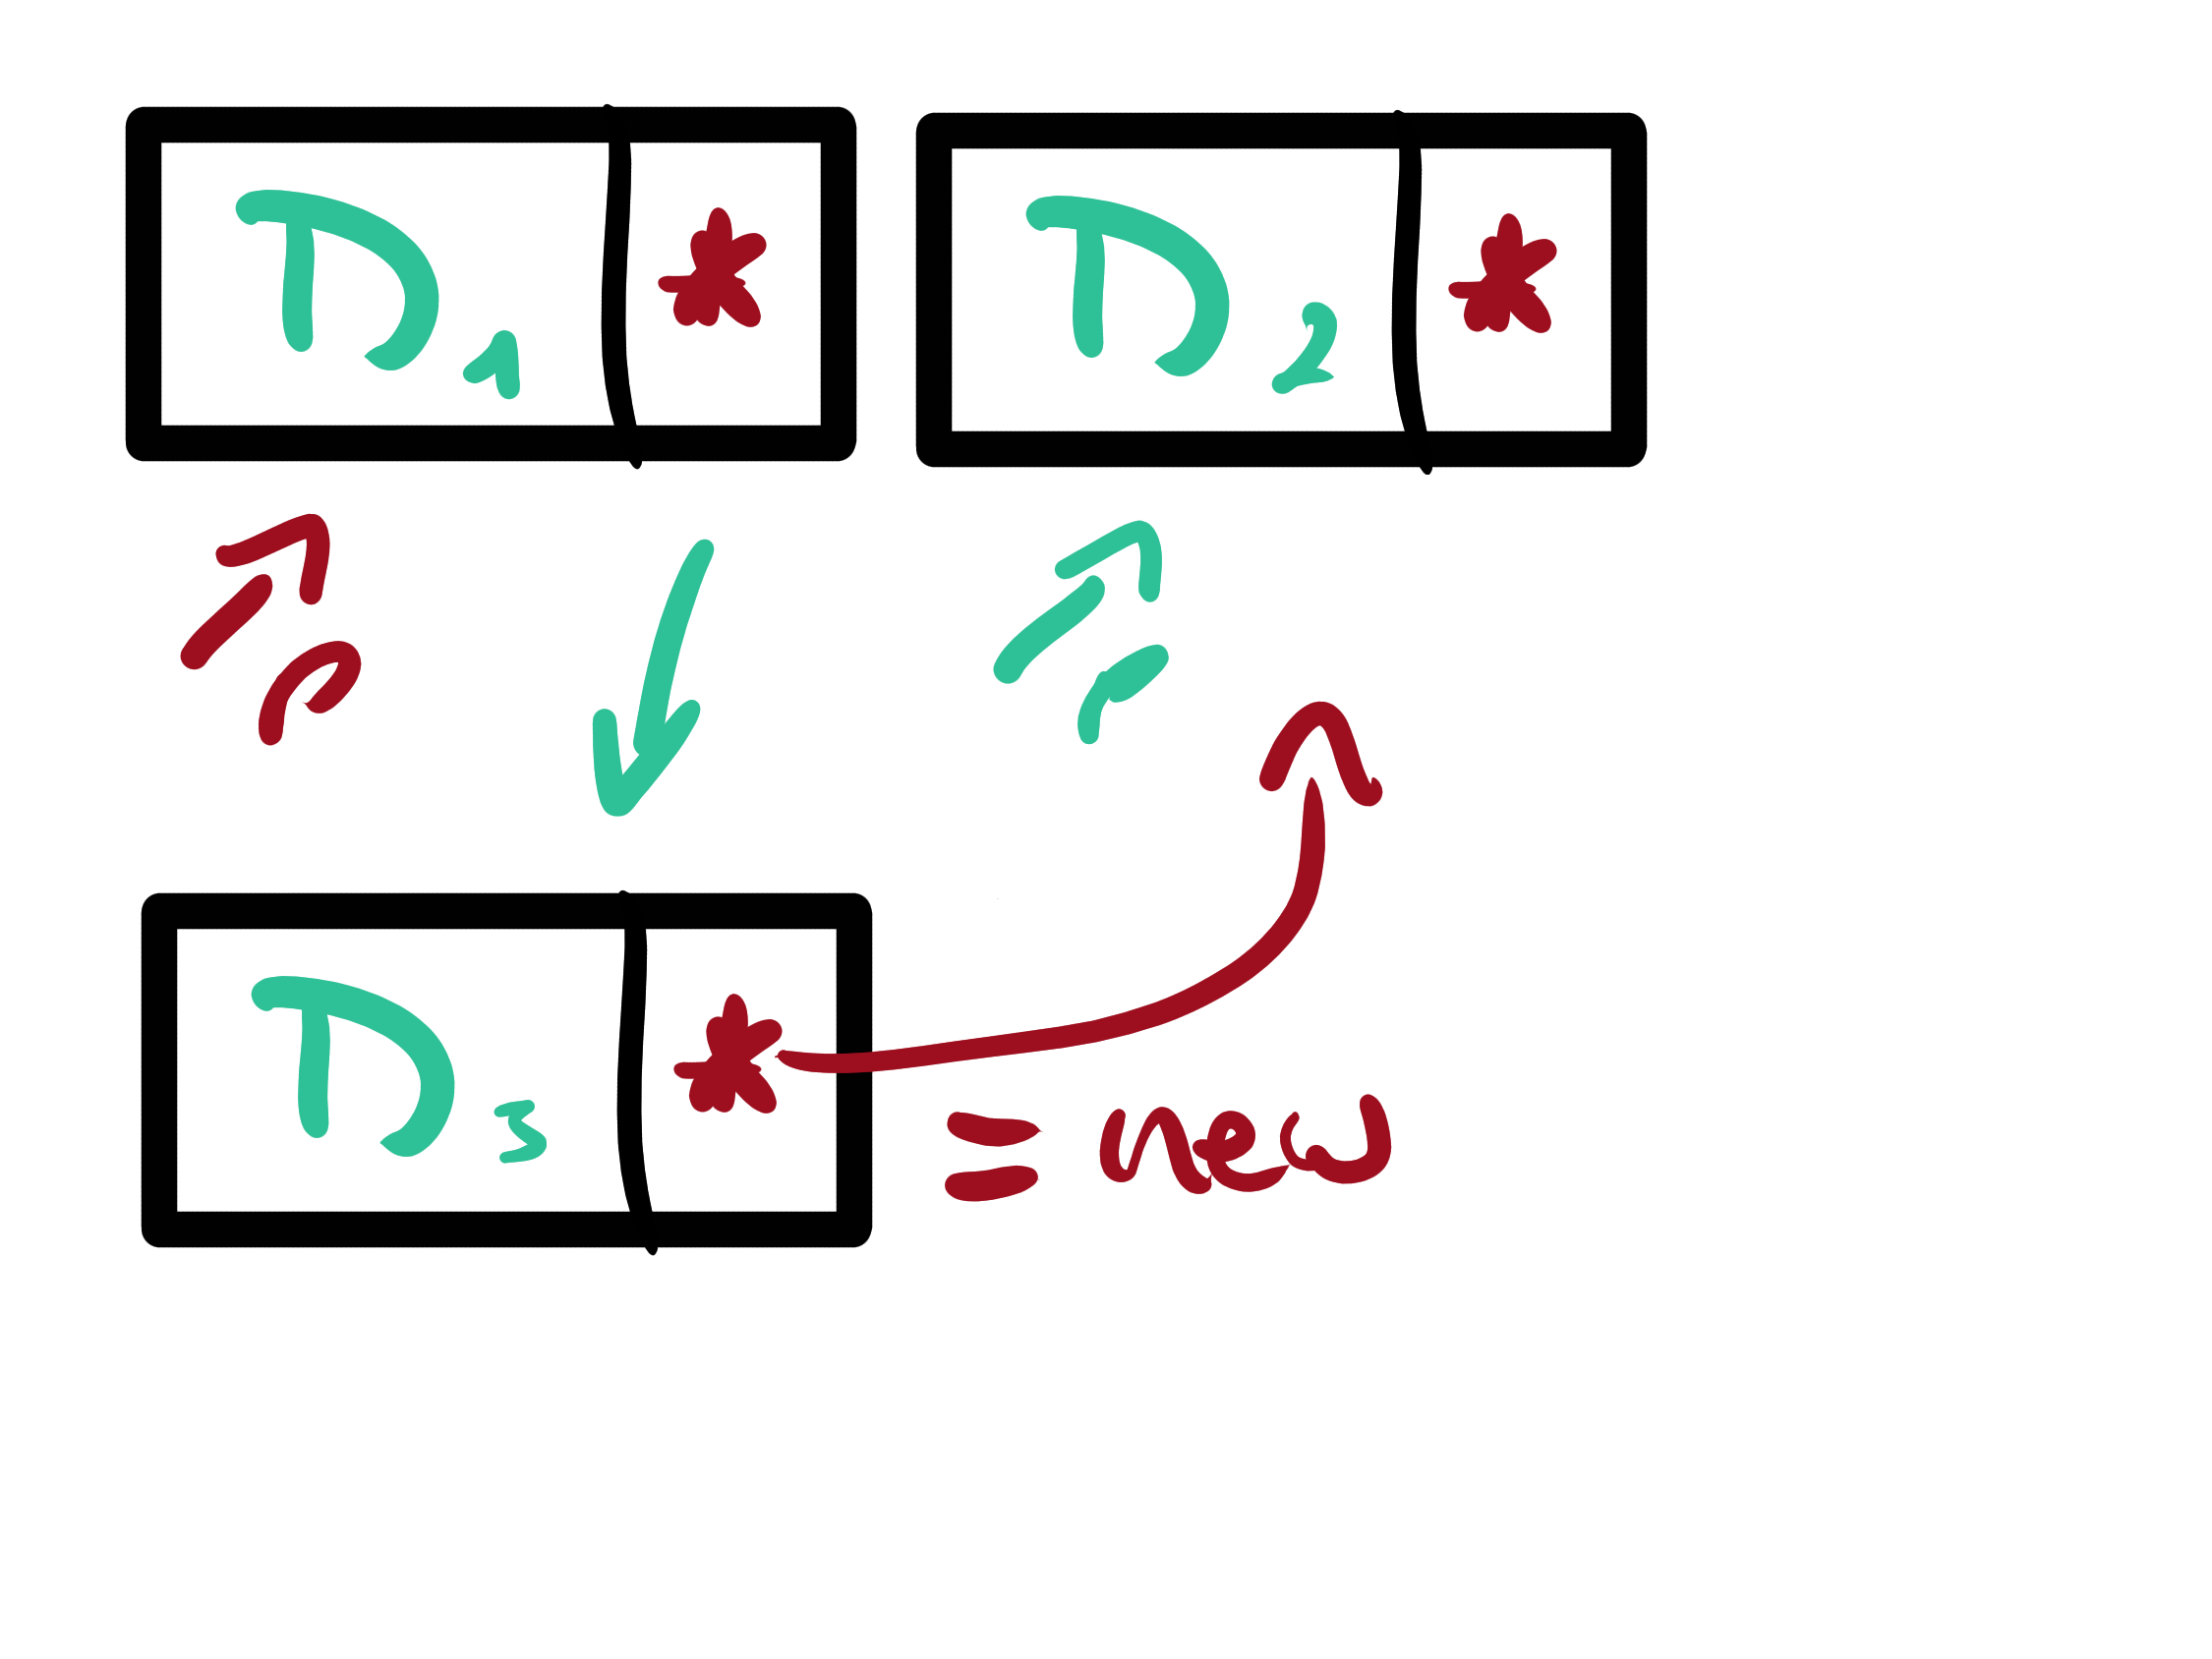 D1 * D2 *
p p
D3 *
= new